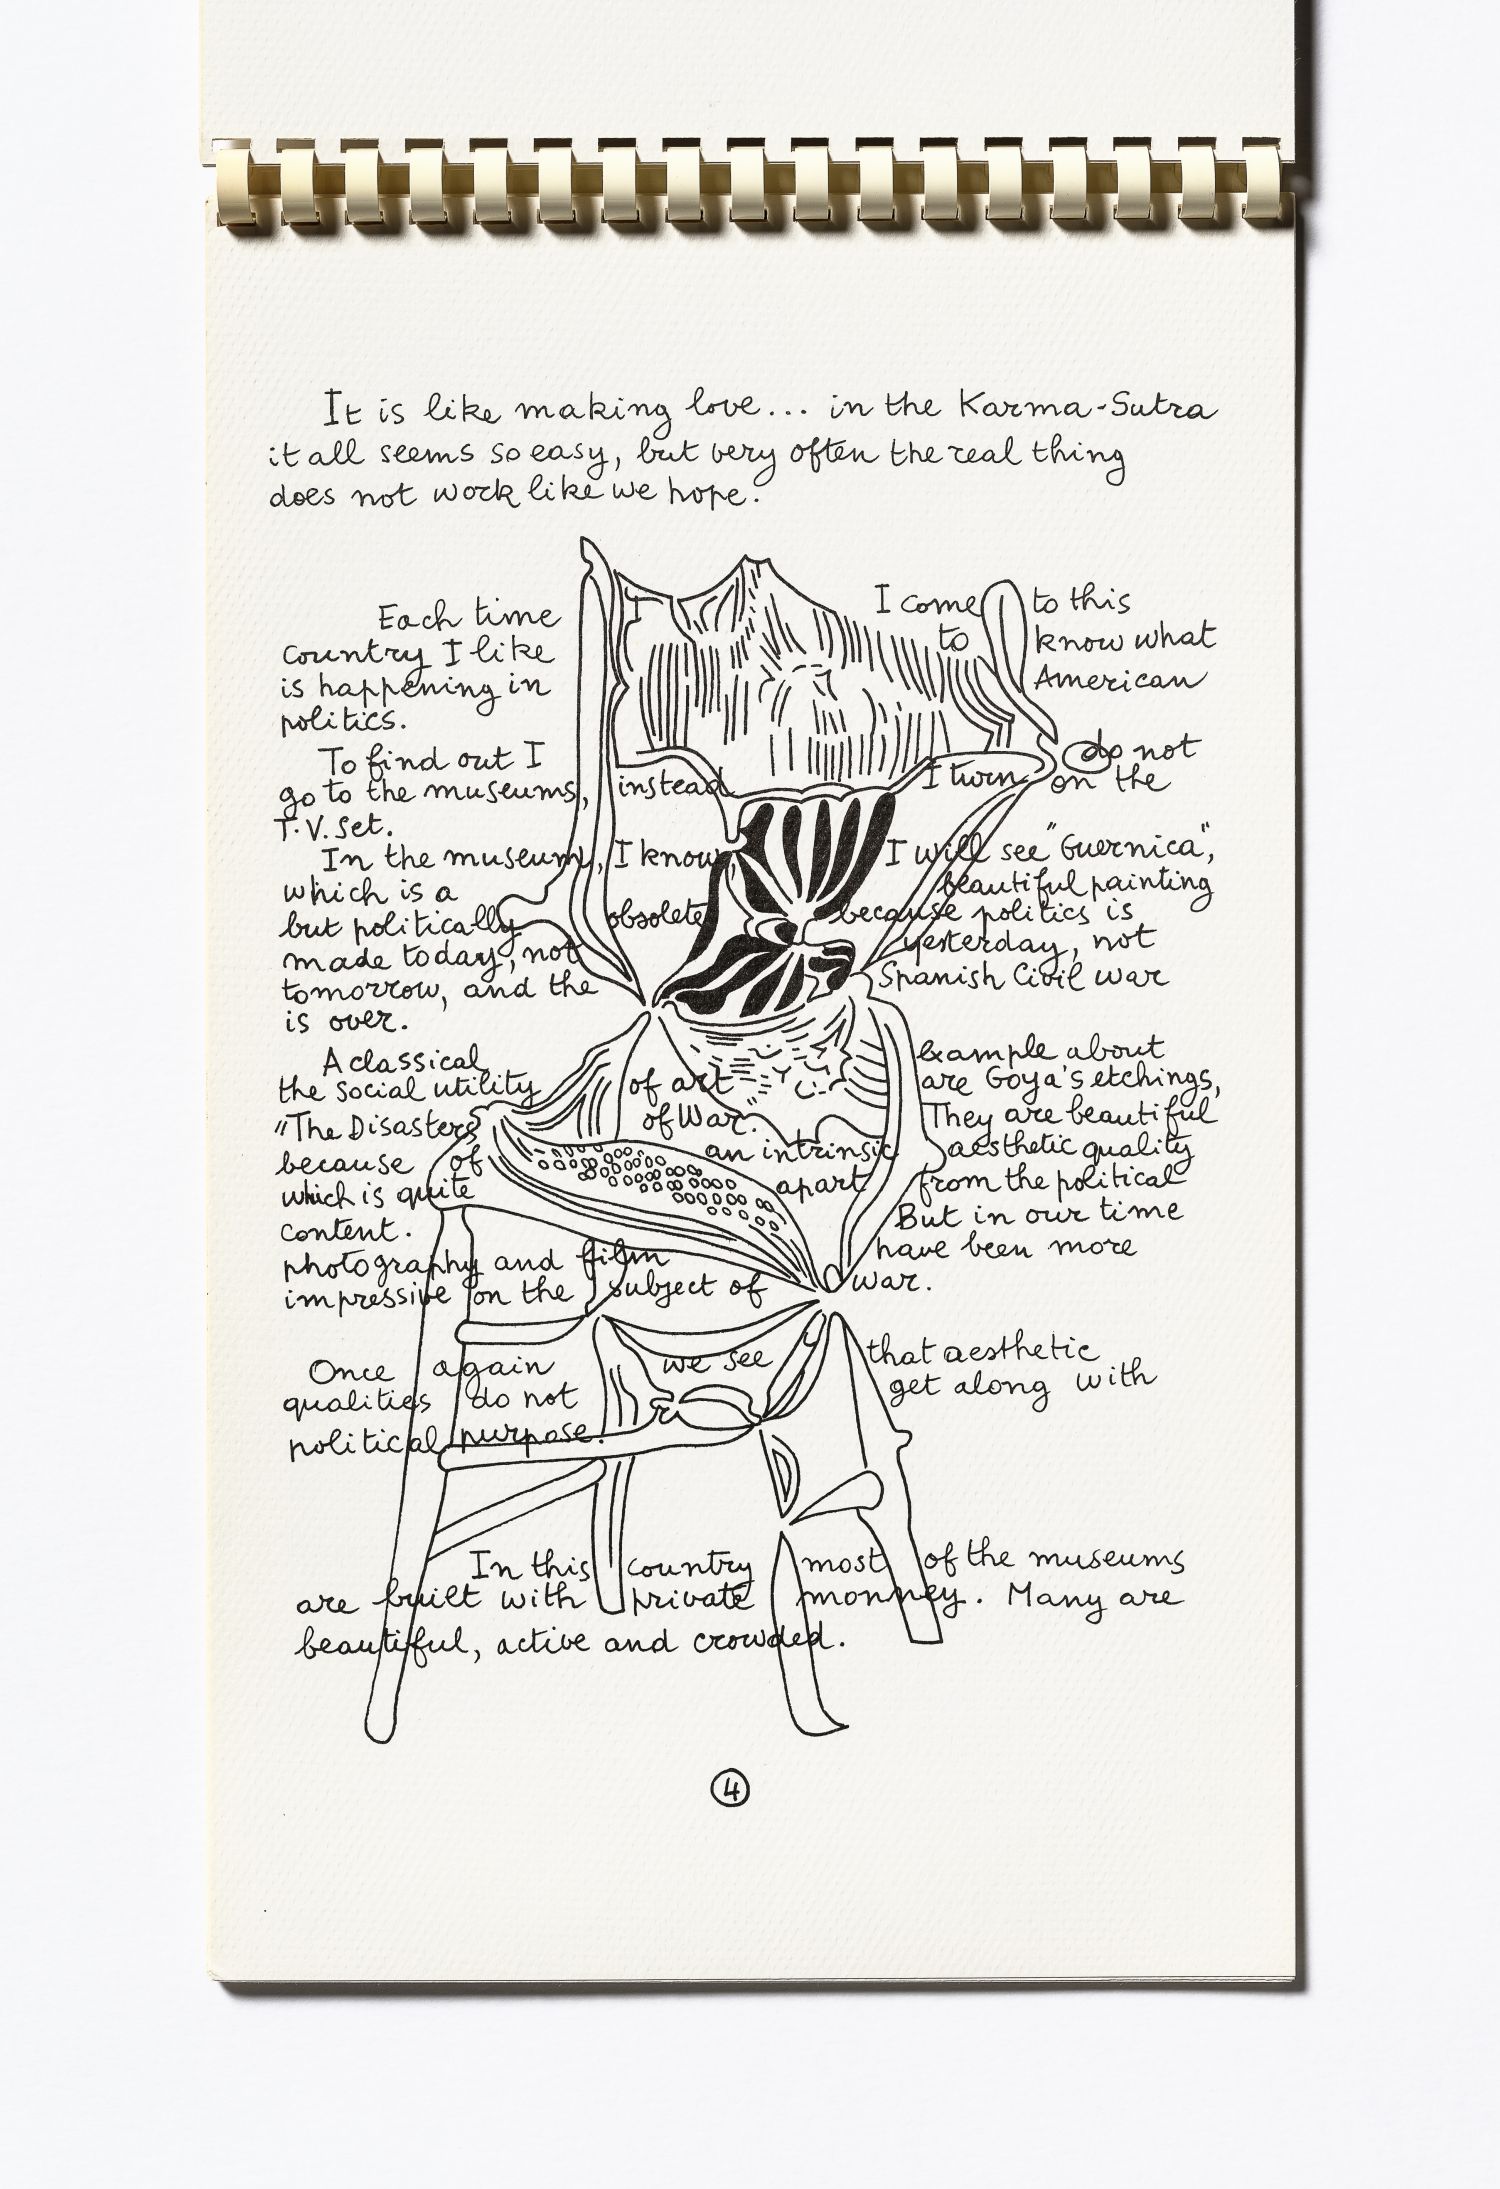 It is like making love... in the Karma-Sutra
it all seems so easy, but very often the real thing
does not work like we hope.
Each time I I come to this
country I like to know what
is happening in American
politics.
To find out I do not
go to the museums, instead I turn on the
T.V. Set.
In the museum, I know, I will see "Guernica",
which is a beautiful painting
but politically obsolete because politics is
made today, not yesterday, not
tomorrow, and the Spanish Civil war
is over.
A classical example about
the social utility of art are Goya's etchings,
"The Disasters of War." They are beautiful
because of an intrinsic aesthetic quality
which is quite apart from the political
content. But in our time
photography and film have been more
impressive on the subject of war.
Once again we see that aesthetic
qualities do not get along with
political purpose.
In this country most of the museums
are built with private monney. Many are
beautiful, active and crowded.
4